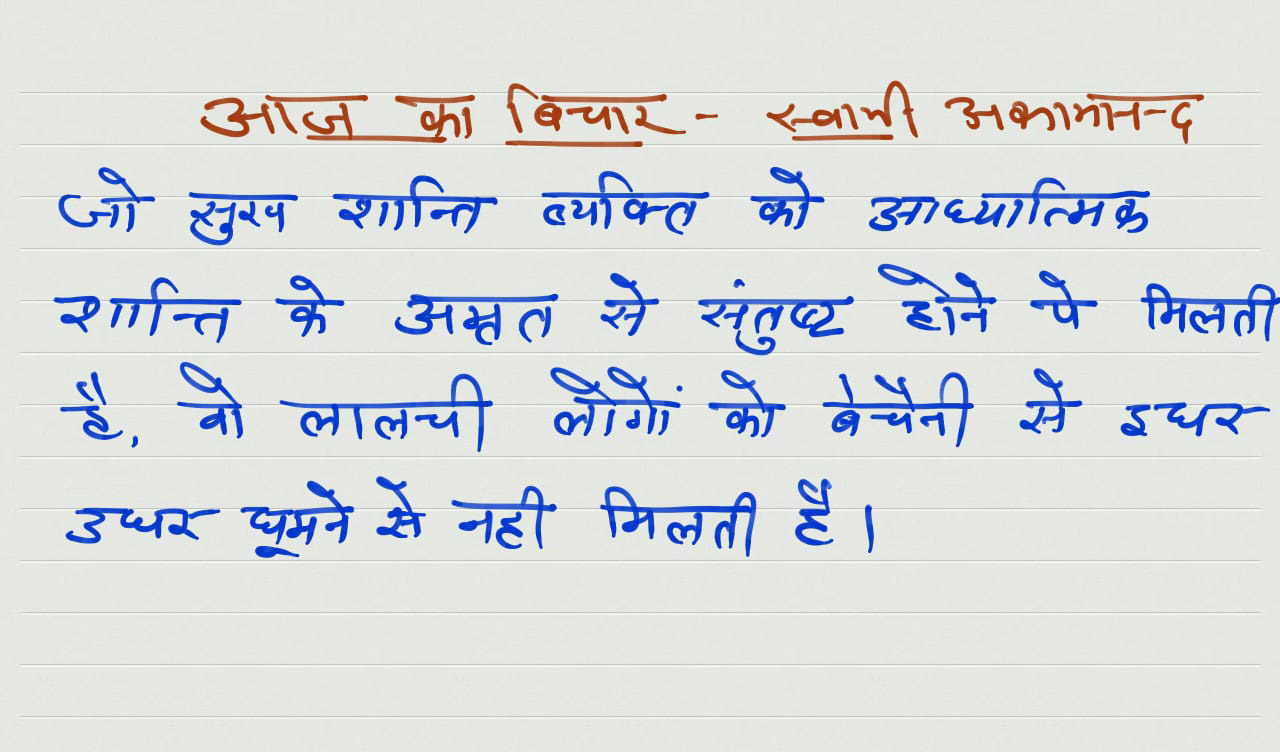 आज का बिचार - स्वामी अकामानन्द
जो सुख शान्ति व्यक्ति को आध्यात्मिक
शान्ति के अमृत से संतुष्ट होने पे मिलती
है, वो लालची लोगों को बेचैनी से इधर
उधर घूमने से नही मिलती है।